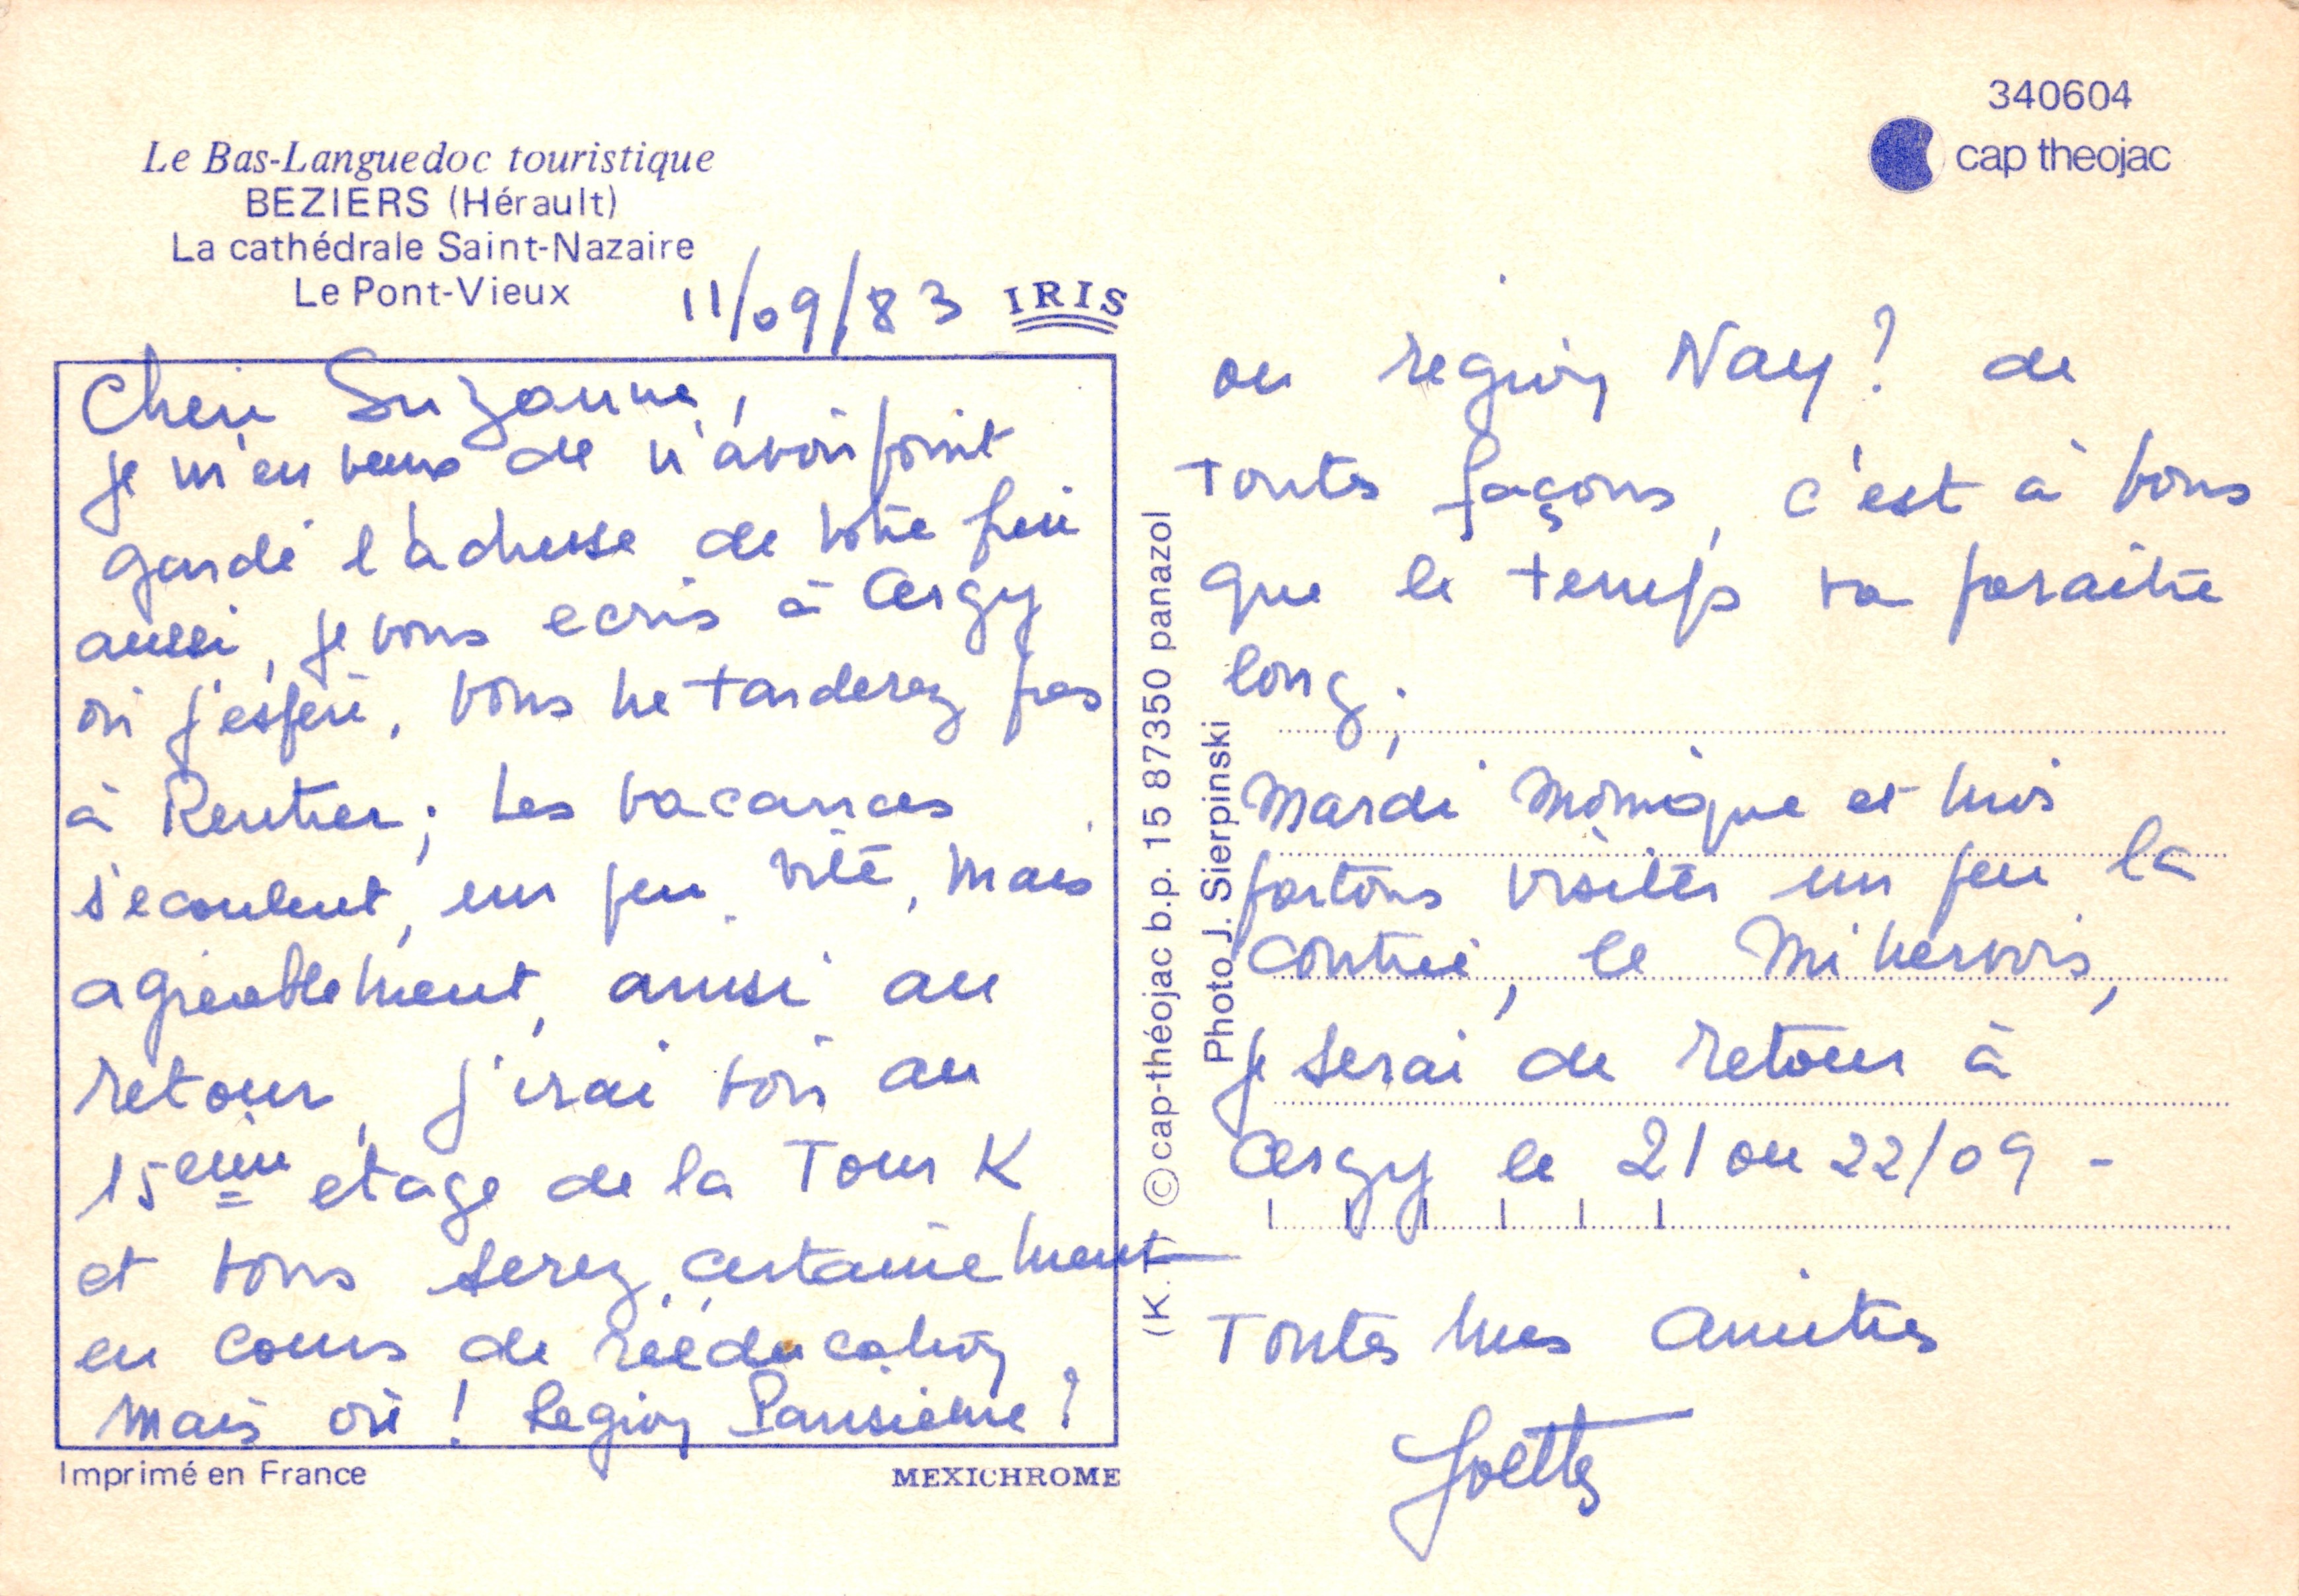 340604
cap theojac
Le Bas-Languedoc touristique
BEZIERS (Hérault)
La cathédrale Saint-Nazaire
Le Pont-Vieux
11/09/83
IRIS
Chère Suzanne,
je m'en veux de n'avoir point
gardé l'adresse de votre frère
aussi, je vous ecris à Cergy
où j'espère, vous ne tarderez pas
à Rentrer; Les vacances
s'ecoulent, un peu vite, mais
agréablement, aussi au
retour, j'irai voir au
15eme etage de la Tour K
et vous serez, certainement
en cours de rééducation
mais où ! Region Parisienne ?
Imprimé en France
MEXICHROME
(K.T) © cap-théojac b.p. 15 87350 panazol
Photo J. Sierpinski
ou region Nay ? de
toutes façons, c'est à vous
que le temps va paraitre
long;
Mardi Monique et moi
partons visiter un peu la
contrée, le Minervois,
je serai de retour à
Cergy le 21 ou 22/09 -
Toutes mes amitiés